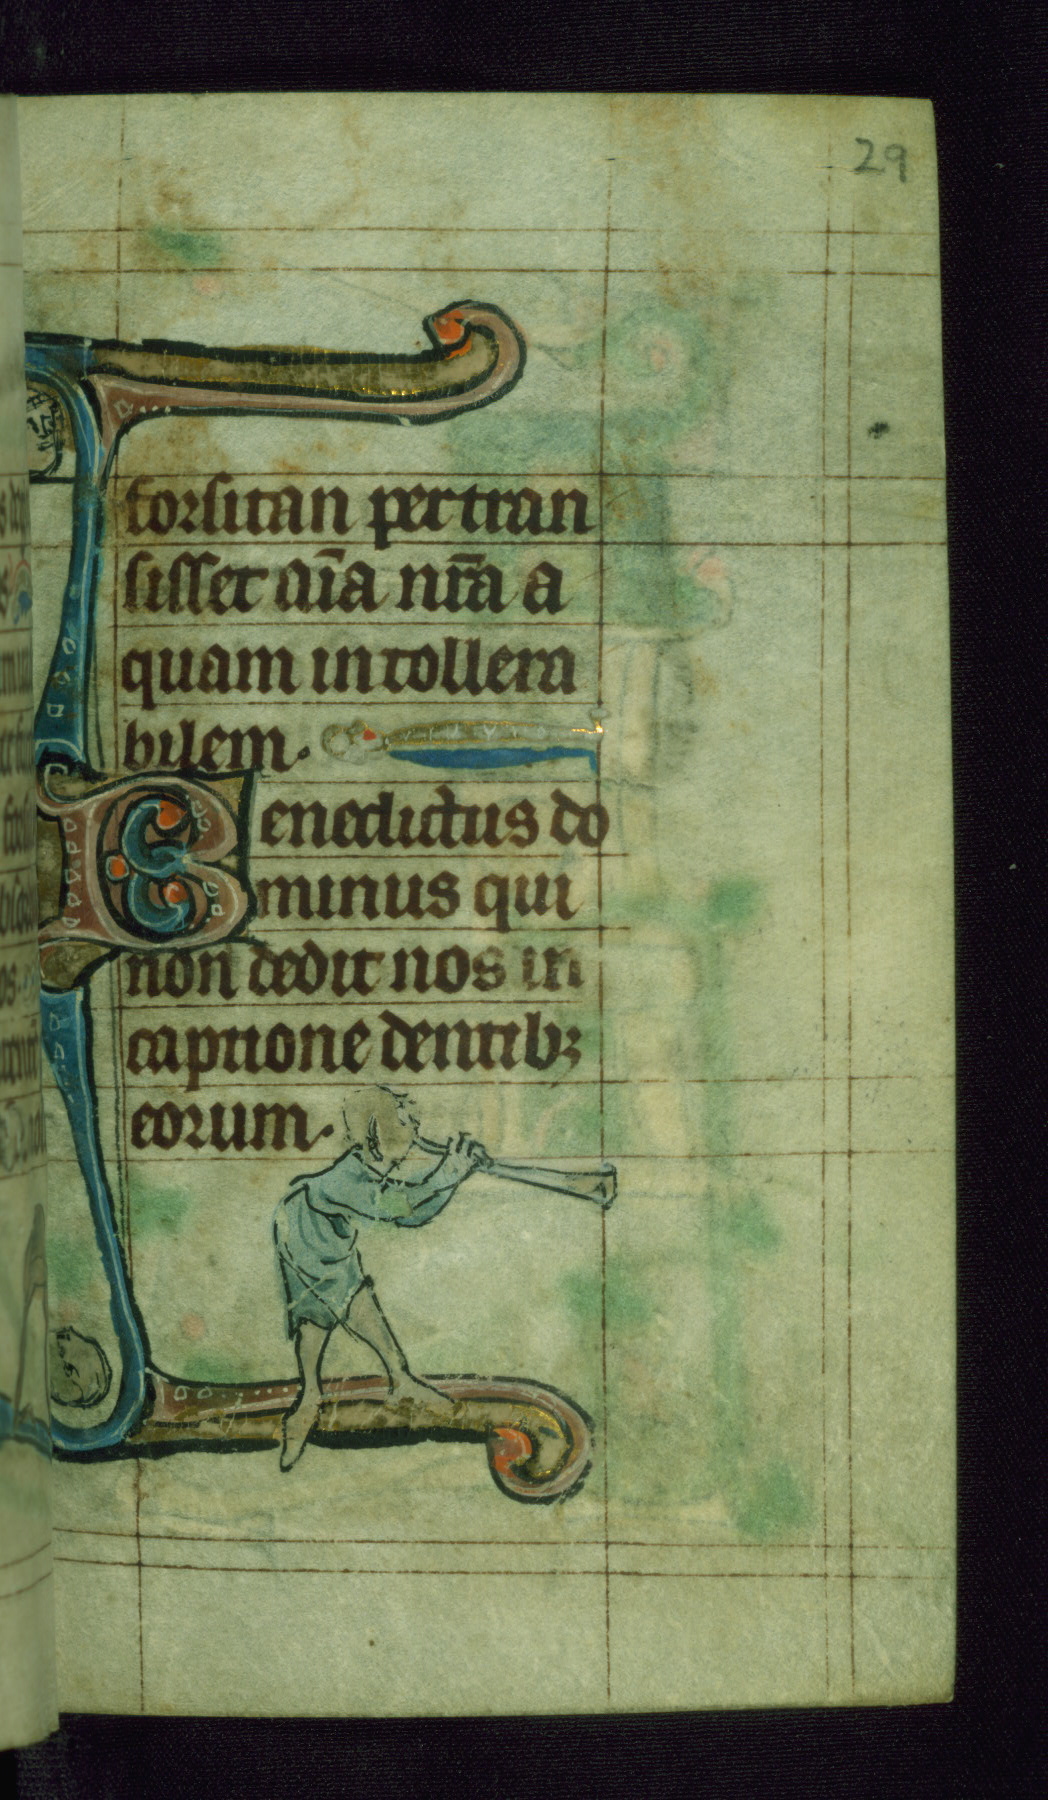 29
forsitan pertran
sisset aīa nr̄a a
quam intollera
bilem.
Benedictus do
minus qui
non dedit nos in
captione dentibꝫ
eorum.